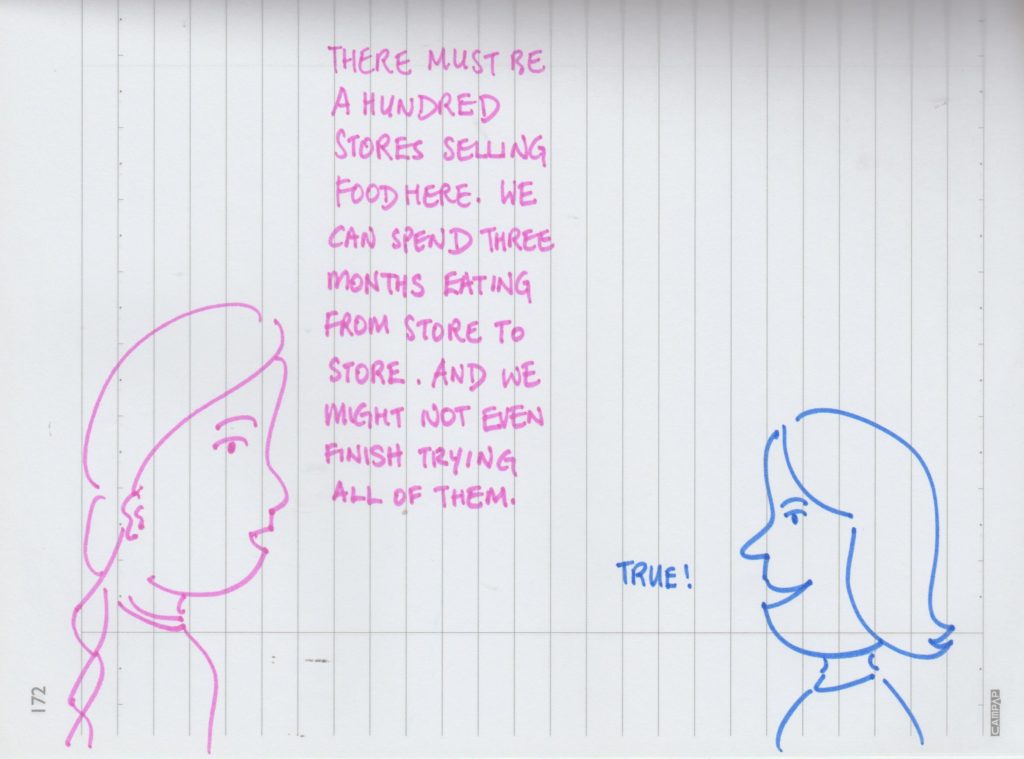 THERE MUST BE
A HUNDRED
STORES SELLING
FOOD HERE. WE
CAN SPEND THREE
MONTHS EATING
FROM STORE TO
STORE. AND WE
MIGHT NOT EVEN
FINISH TRYING
ALL OF THEM.
TRUE!
172
CAMPAP